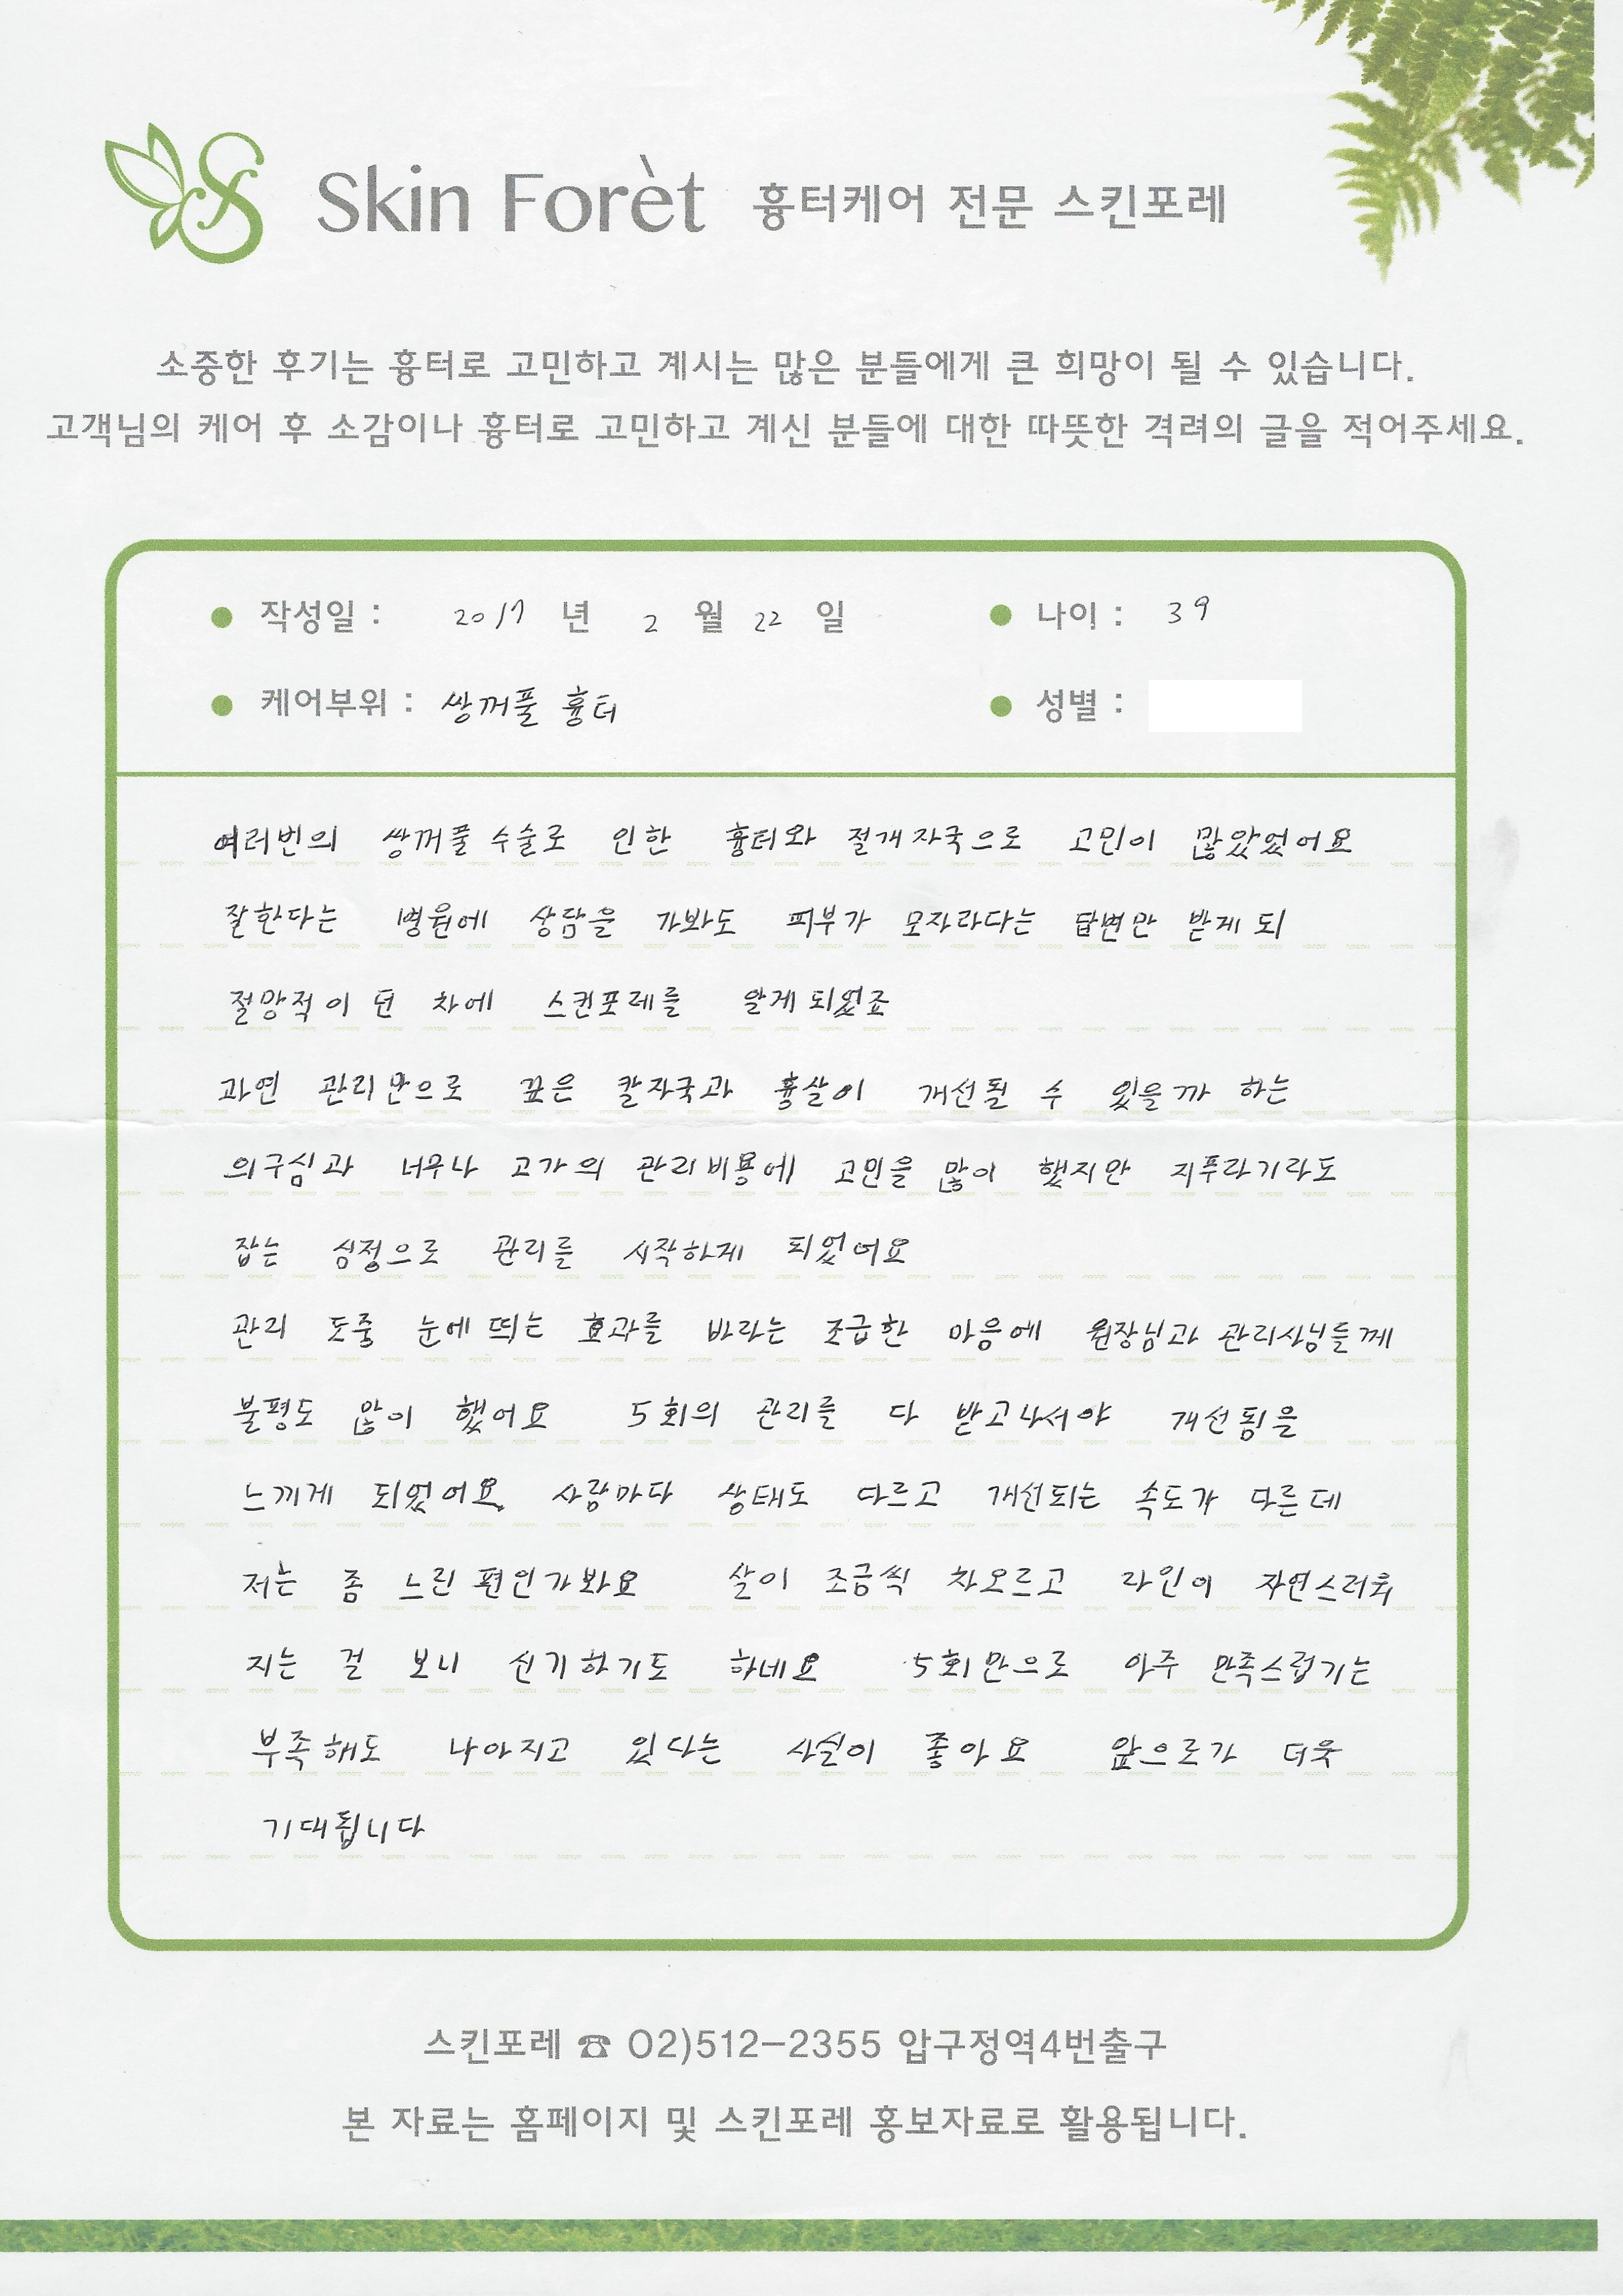 Skin Forèt 흉터케어 전문 스킨포레
소중한 후기는 흉터로 고민하고 계시는 많은 분들에게 큰 희망이 될 수 있습니다.
고객님의 케어 후 소감이나 흉터로 고민하고 계신 분들에 대한 따뜻한 격려의 글을 적어주세요.
작성일 : 2017 년 2 월 22 일 나이 : 39
케어부위 : 쌍꺼풀 흉터 성별 :
여러번의 쌍꺼풀 수술로 인한 흉터와 절개자국으로 고민이 많았었어요
잘한다는 병원에 상담을 가봐도 피부가 모자라다는 답변만 받게 되
절망적이던 차에 스킨포레를 알게 되었죠
과연 관리만으로 깊은 칼자국과 흉살이 개선될 수 있을까 하는
의구심과 너무나 고가의 관리비용에 고민을 많이 했지만 지푸라기라도
잡는 심정으로 관리를 시작하게 되었어요
관리 도중 눈에 띄는 효과를 바라는 조급한 마음에 원장님과 관리사님들께
불평도 많이 했어요 5회의 관리를 다 받고나서야 개선됨을
느끼게 되었어요. 사람마다 상태도 다르고 개선되는 속도가 다른데
저는 좀 느린 편인가봐요 살이 조금씩 차오르고 라인이 자연스러워
지는 걸 보니 신기하기도 하네요 5회만으로 아주 만족스럽기는
부족해도 나아지고 있다는 사실이 좋아요 앞으로가 더욱
기대됩니다
스킨포레 ☎ 02)512-2355 압구정역4번출구
본 자료는 홈페이지 및 스킨포레 홍보자료로 활용됩니다.